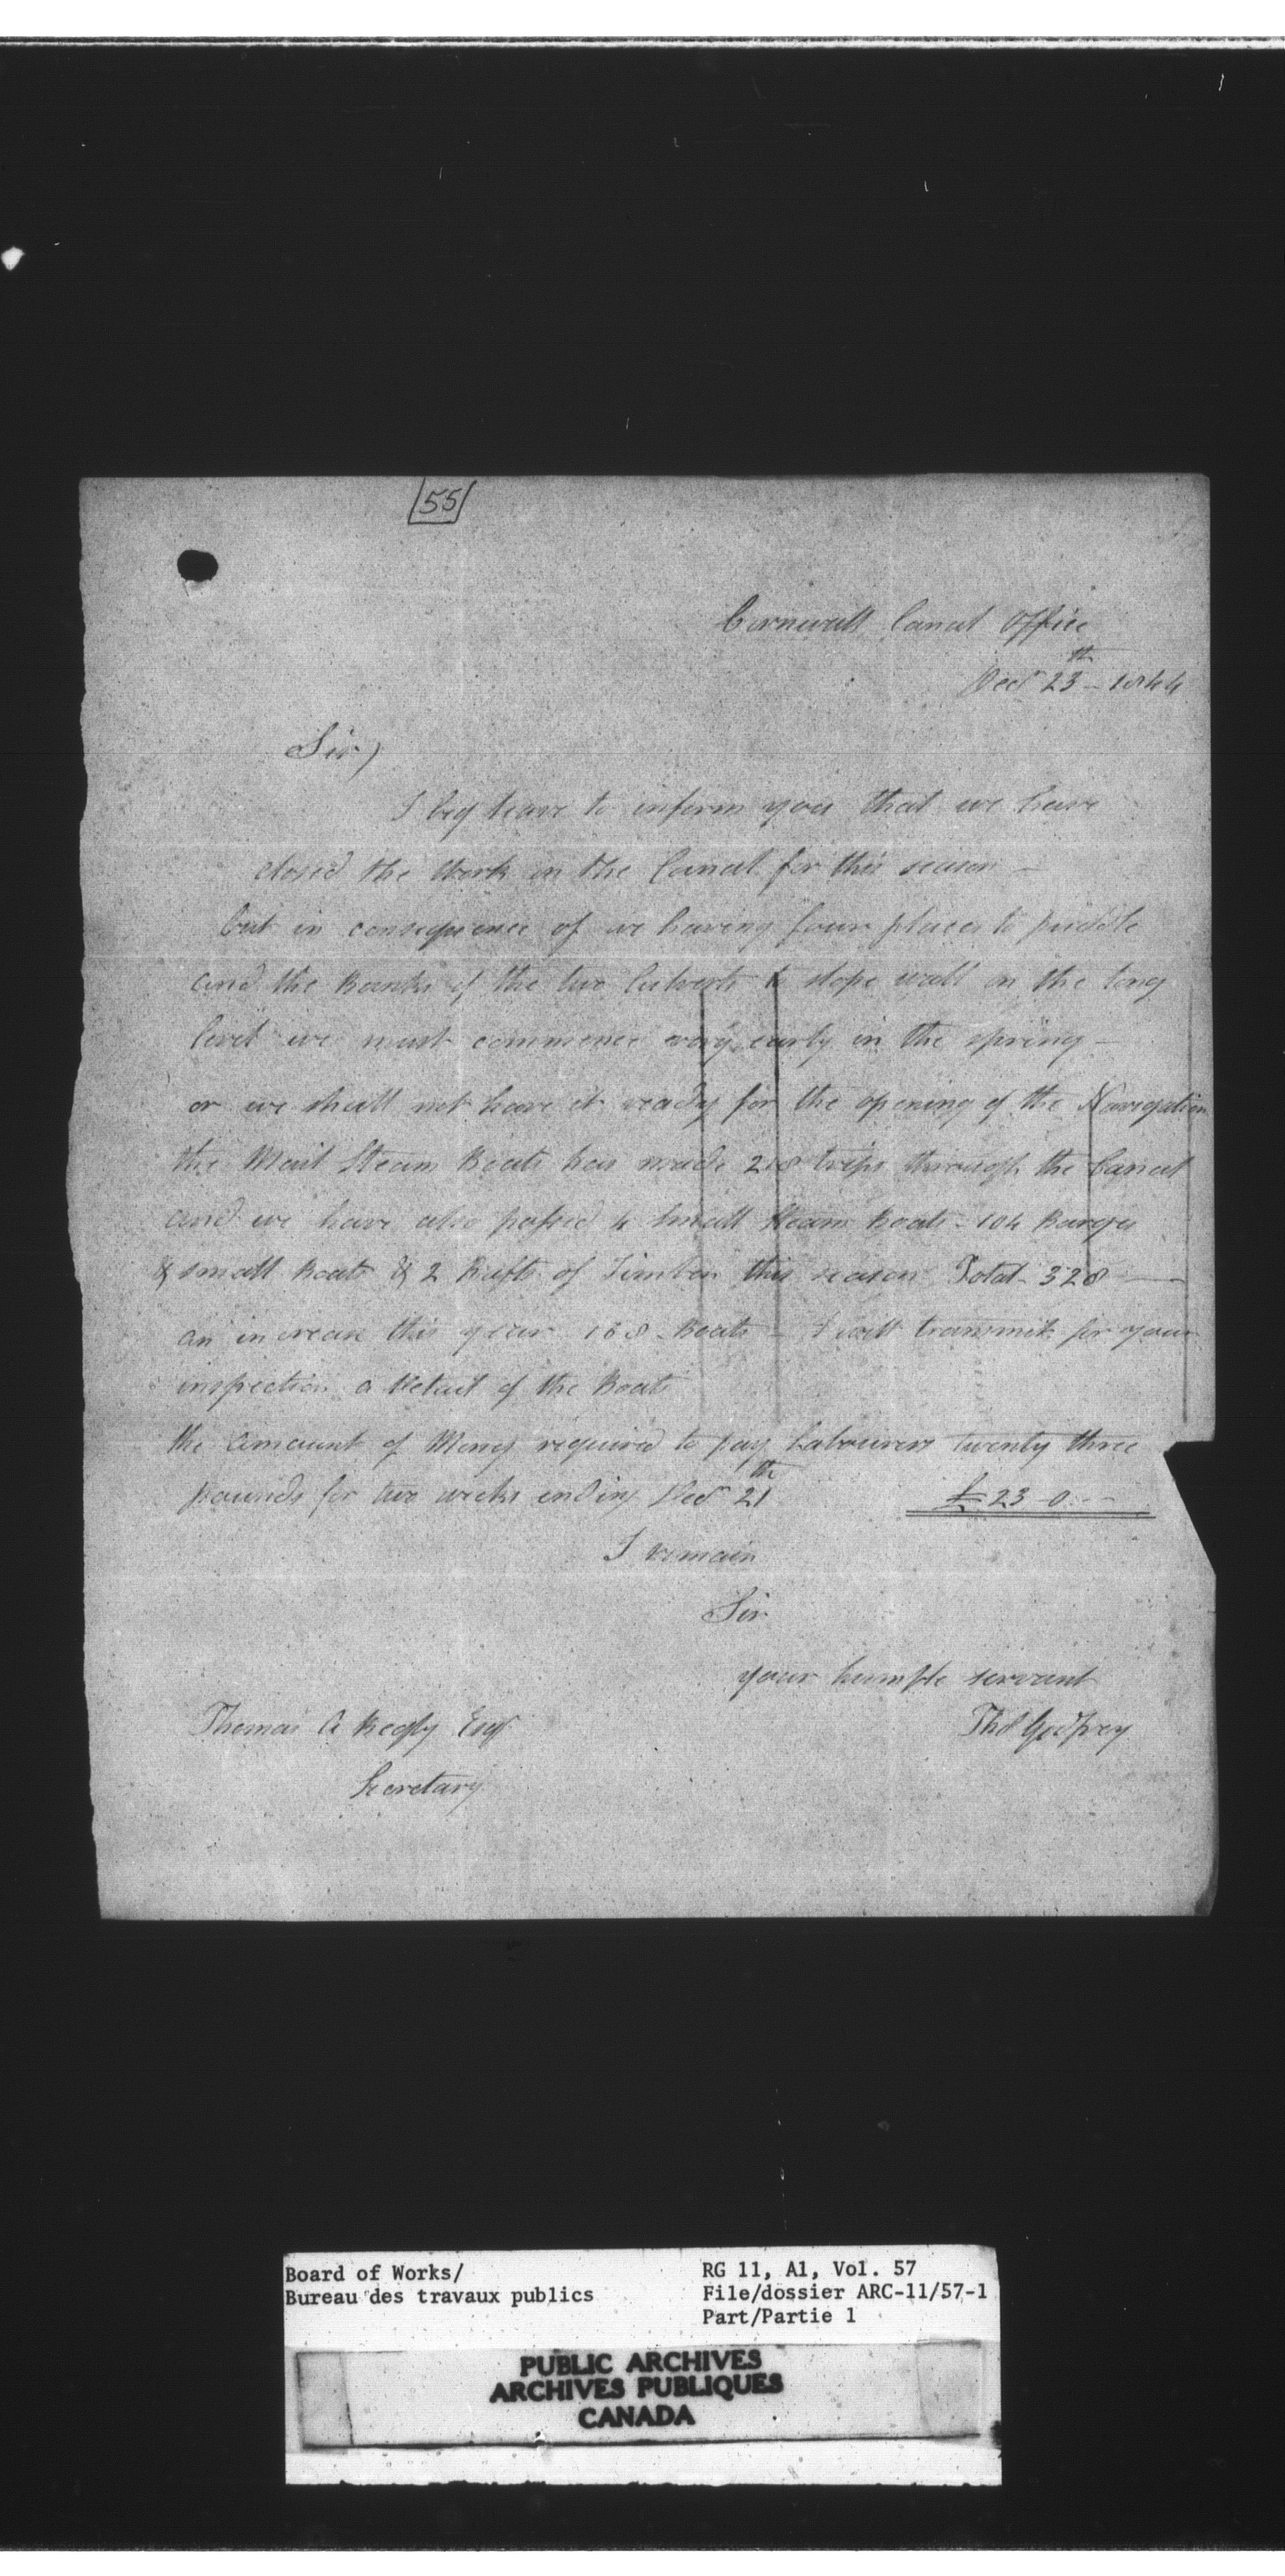 55
Cornwall Canal Office
Decr 23th - 1844
Sir)
I beg leave to inform you that we have
closed the Work on the Canal for this season -
but in consequence of we having four places to puddle
and the Banks of the two Culverts to slope wall on the long
level we must commence very early in the spring -
or we shall not have it ready for the opening of the Navigation
the Mail Steam Boats has made 218 trips through the Canal
and we have also passed 4 Small Steam Boats - 104 Barges
& small Boats & 2 Rafts of Timber this season Total - 328
an increase this year 168 - Boats - I will transmit for your
inspection a Detail of the Boats
the amount of Money required to pay Labourers twenty three
pounds for two weeks ending Decr 21th £ 23 - 0 - -
I remain
Sir
your humple servant
Thomas A Begly Esqr Thos Godfrey
Secretary
Board of Works/ RG 11, A1, Vol. 57
Bureau des travaux publics File/dossier ARC-11/57-1
Part/Partie 1
PUBLIC ARCHIVES
ARCHIVES PUBLIQUES
CANADA